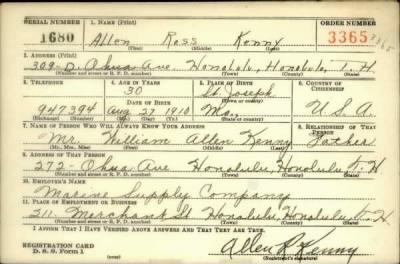 SERIAL NUMBER 1. NAME (Print) ORDER NUMBER
1680 Allen Ross Kenny 3365
(First) (Middle) (Last)
2. ADDRESS (Print)
309 D Ohua Ave. Honolulu, Honolulu, T. H.
(Number and street or R. F. D. number) (Town) (County) (State)
3. TELEPHONE 4. AGE IN YEARS 5. PLACE OF BIRTH 6. COUNTRY OF CITIZENSHIP
30 St. Joseph
DATE OF BIRTH (Town or county)
947394 Aug 27 1910 Mo., U.S.A.
(Exchange) (Number) (Mo.) (Day) (Yr.) (State or country)
7. NAME OF PERSON WHO WILL ALWAYS KNOW YOUR ADDRESS 8. RELATIONSHIP OF THAT PERSON
Mr. William Allen Kenny Father
(Mr., Mrs., Miss) (First) (Middle) (Last)
9. ADDRESS OF THAT PERSON
272 - Ohua Ave Honolulu, Honolulu T. H.
(Number and street or R. F. D. number) (Town) (County) (State)
10. EMPLOYER'S NAME
Marine Supply Company
11. PLACE OF EMPLOYMENT OR BUSINESS
211 Merchant St Honolulu, Honolulu T. H.
(Number and street or R. F. D. number) (Town) (County) (State)
I AFFIRM THAT I HAVE VERIFIED ABOVE ANSWERS AND THAT THEY ARE TRUE.
REGISTRATION CARD
D. S. S. Form 1 Allen R Kenny
(Registrant's signature)